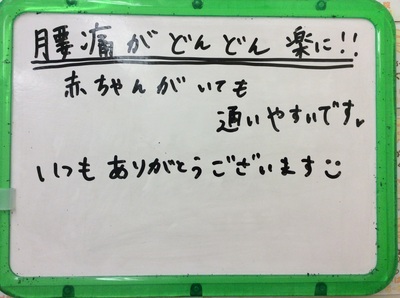 腰痛がどんどん楽に!!
赤ちゃんがいても
通いやすいです。
いつもありがとうございます